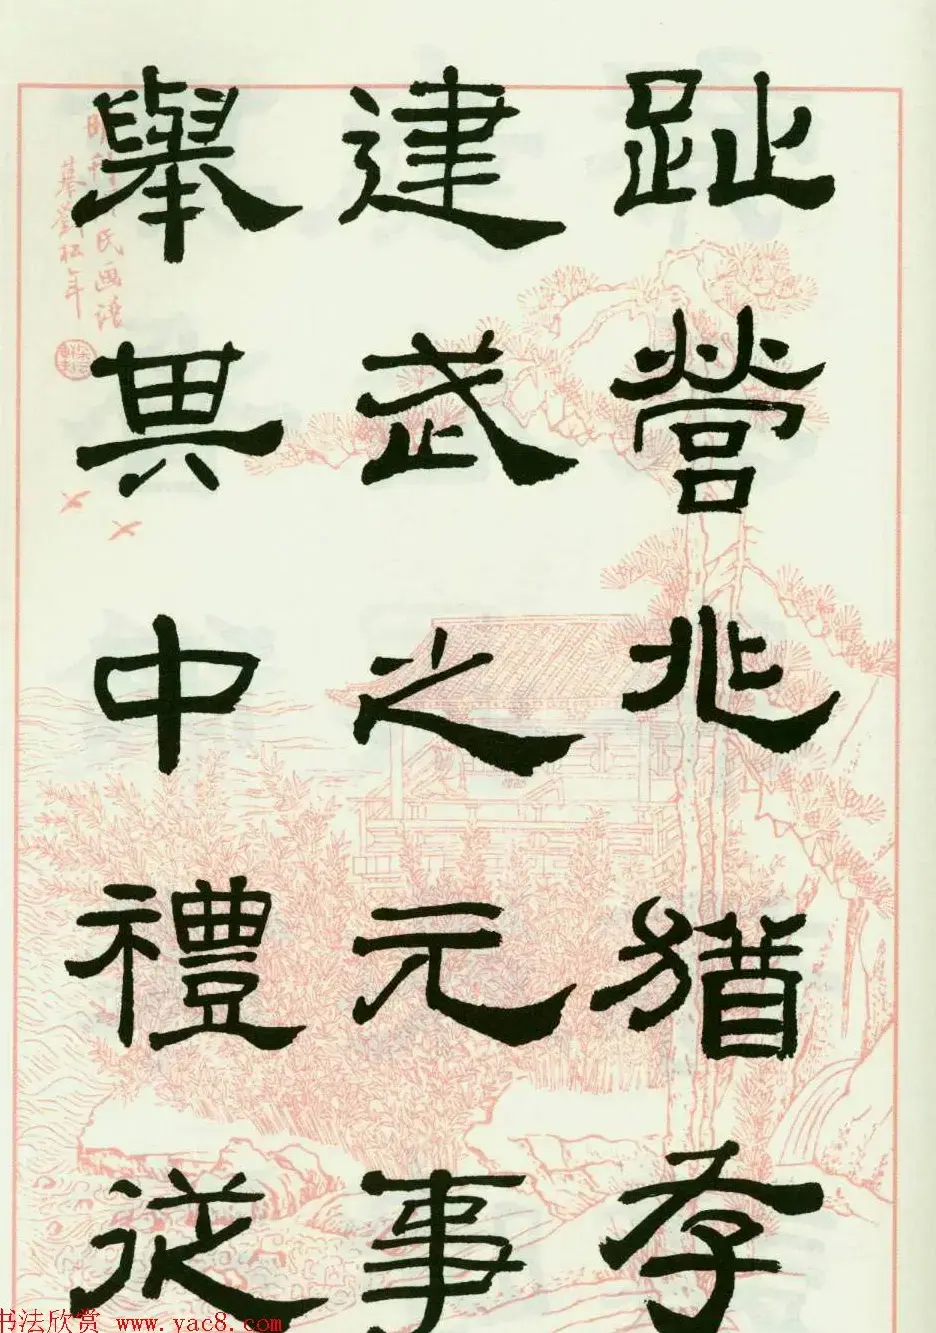 趾營兆猶存
建武之元事
舉其中禮從
摹劉松年
书法欣赏 www.yac8.com